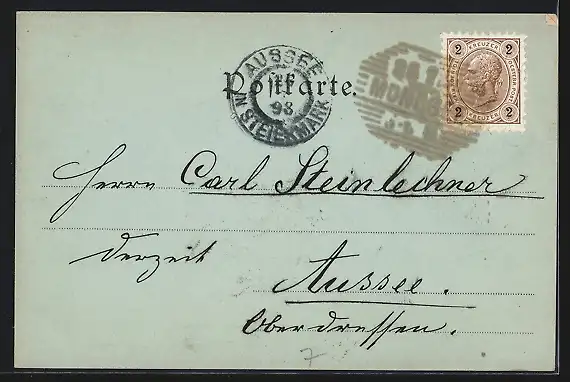 AUSSEE
IN STEIERMARK
98
Postkarte.
2 KREUZER 2
2 KREUZER 2
Herrn Carl Steinlechner
derzeit
Aussee.
Oberdressen.
7